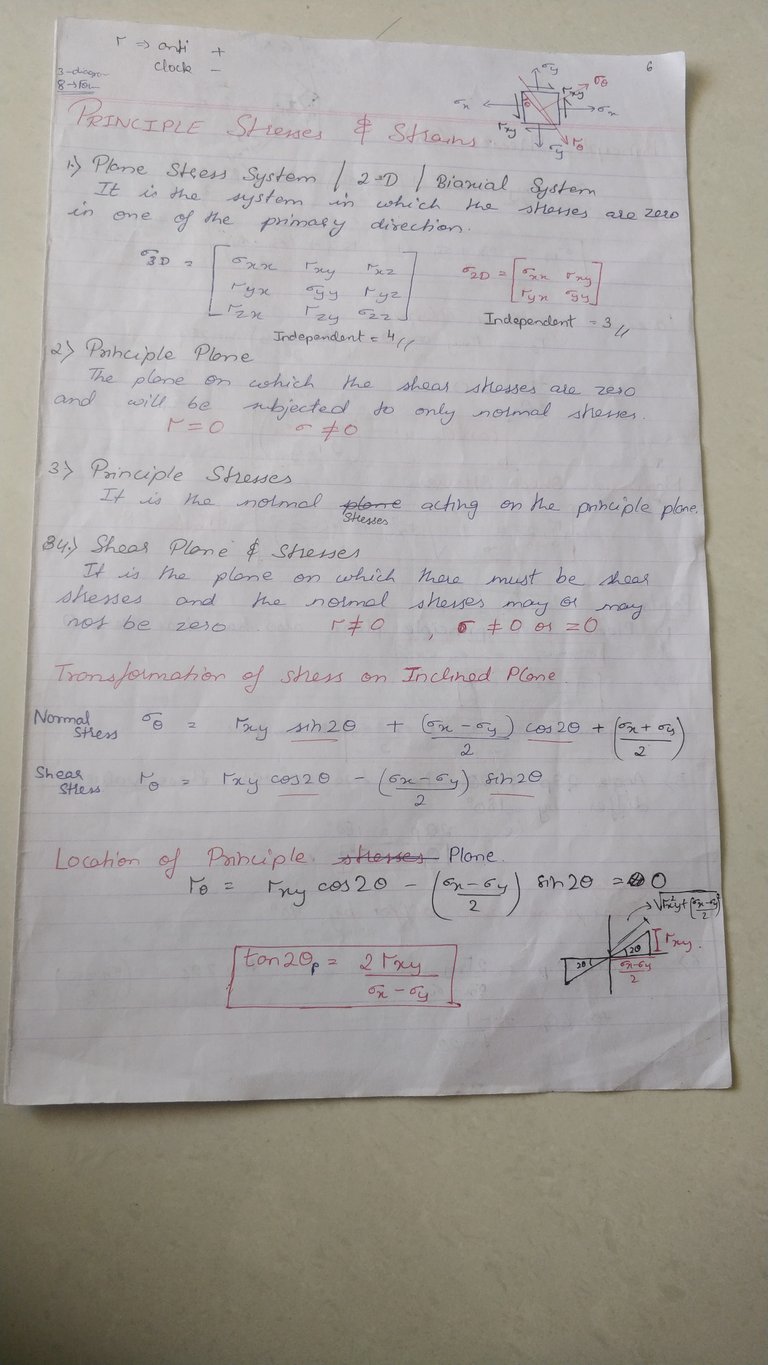 τ ⇒ anti +
clock −
3-diagram
8→for
6
σy
σθ
τxy
σx
θ
σx
τxy
σy
τθ
PRINCIPLE Stresses & Strains
1.) Plane Stress System / 2-D / Biaxial System
It is the system in which the stresses are zero
in one of the primary direction.
σ3D = [ σxx τxy τxz
τyx σyy τyz
τzx τzy σzz ]
Independent = 4 //
σ2D = [ σxx τxy
τyx σyy ]
Independent = 3 //
2) Principle Plane
The plane on which the shear stresses are zero
and will be subjected to only normal stresses.
τ = 0 σ ≠ 0
3) Principle Stresses
It is the normal plane acting on the principle plane.
Stresses
34.) Shear Plane & Stresses
It is the plane on which there must be shear
stresses and the normal stresses may or may
not be zero. τ ≠ 0 , σ ≠ 0 or = 0
Transformation of stress on Inclined Plane.
Normal Stress σθ = τxy sin2θ + (σx − σy)/2 cos2θ + (σx + σy)/2
Shear Stress τθ = τxy cos2θ − (σx − σy)/2 sin2θ
Location of Principle stresses Plane.
τθ = τxy cos2θ − (σx − σy)/2 sin2θ = 0
√τ²xy + (σx − σy / 2)²
τxy.
2θ
2θ
σx − σy / 2
tan2θp = 2τxy / σx − σy